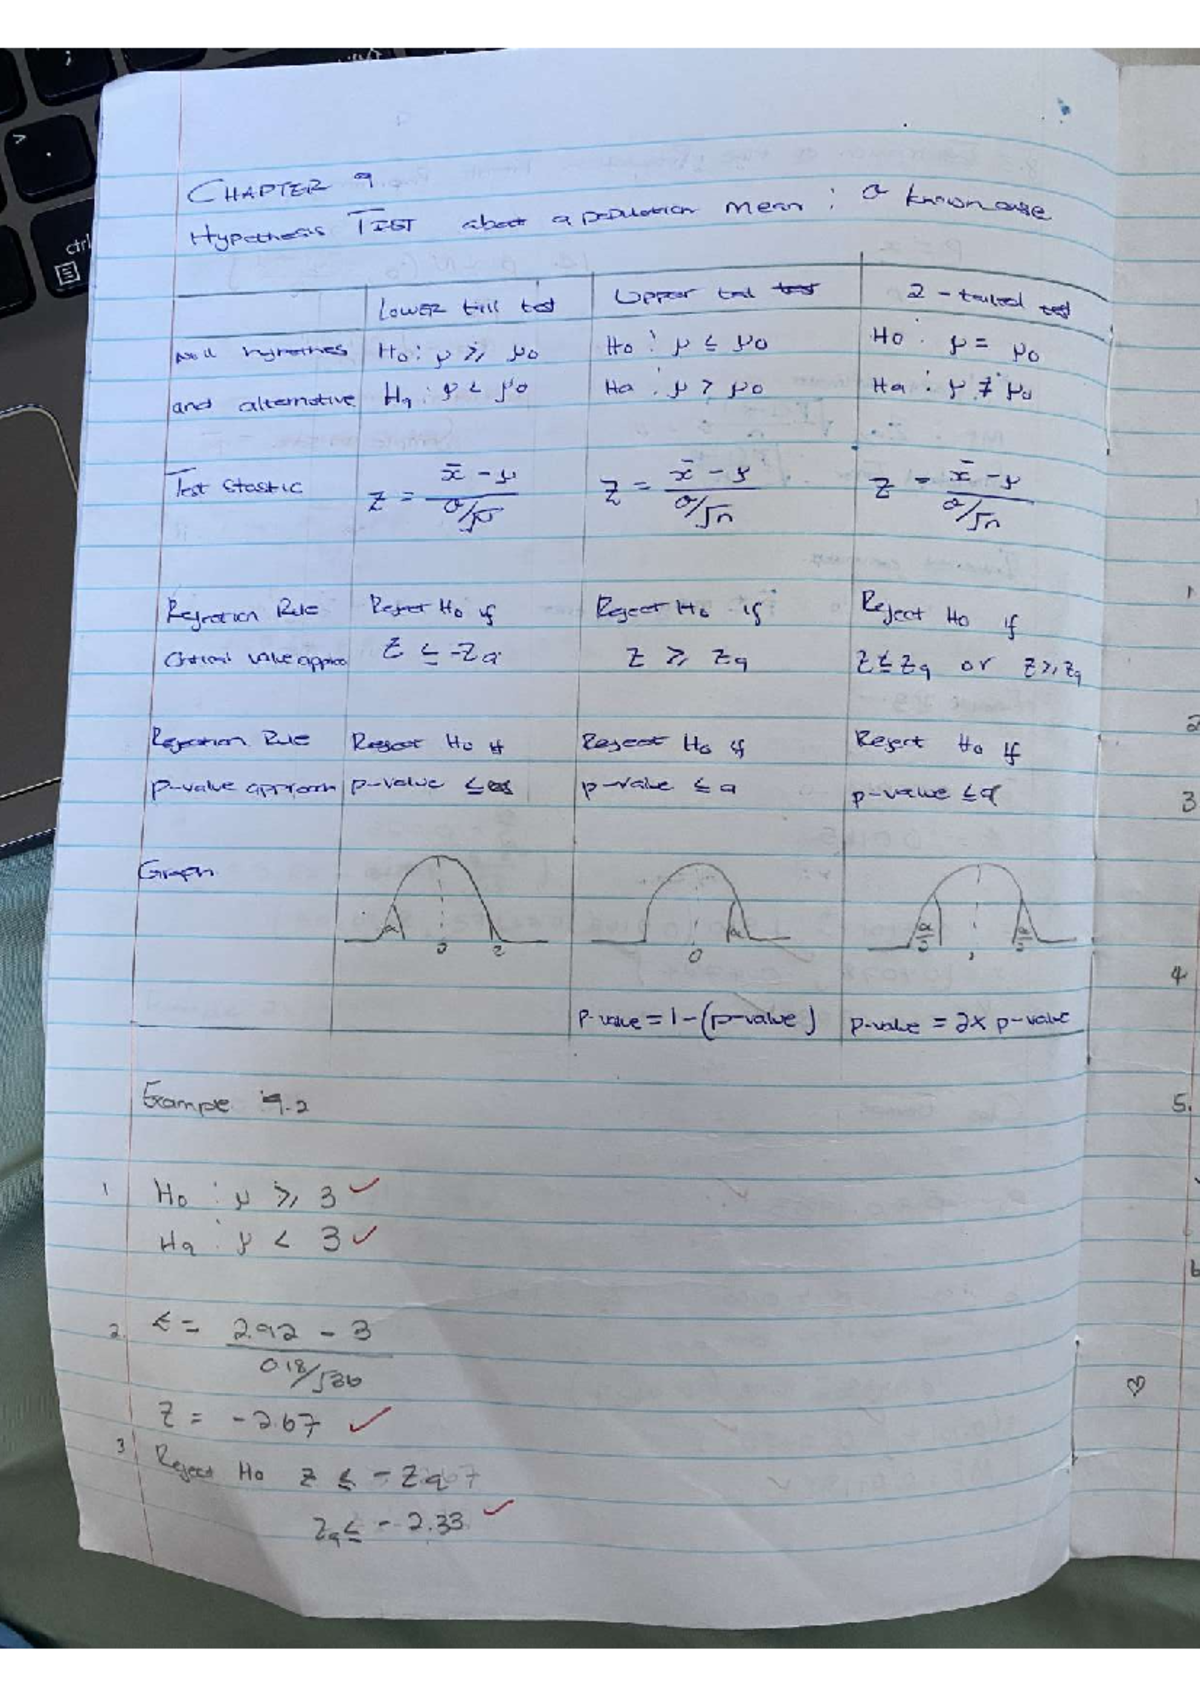 CHAPTER 9
Hypothesis TEST about a population mean : σ known case
Lower tail test
Upper tail test
2 - tailed test
Null hypotheses
and alternative
H₀ : μ ≥ μ₀
Hₐ : μ < μ₀
H₀ : μ ≤ μ₀
Hₐ : μ > μ₀
H₀ : μ = μ₀
Hₐ : μ ≠ μ₀
Test Stastic
Z = x̄ - μ / σ/√n
Z = x̄ - μ / σ/√n
Z = x̄ - μ / σ/√n
Rejection Rule
Critical value approa
Reject H₀ if
Z ≤ -Zα
Reject H₀ if
Z ≥ Zα
Reject H₀ if
Z ≤ Zα or Z ≥ Zα
Rejection Rule
p-value approach
Reject H₀ if
p-value ≤ α
Reject H₀ if
p-value ≤ α
Reject H₀ if
p-value ≤ α
Graph
α 0 z
0 α
α/2 α/2
p-value = 1 - (p-value)
p-value = 2x p-value
Example 9.2
1 H₀ : μ ≥ 3 ✓
Hₐ : μ < 3 ✓
2. t = 2.92 - 3 / 0.18/√36
Z = -2.67 ✓
3 Reject H₀ Z ≤ -Zα
Zα ≤ -2.33 ✓
1
2
3
4
5.
6
ctrl